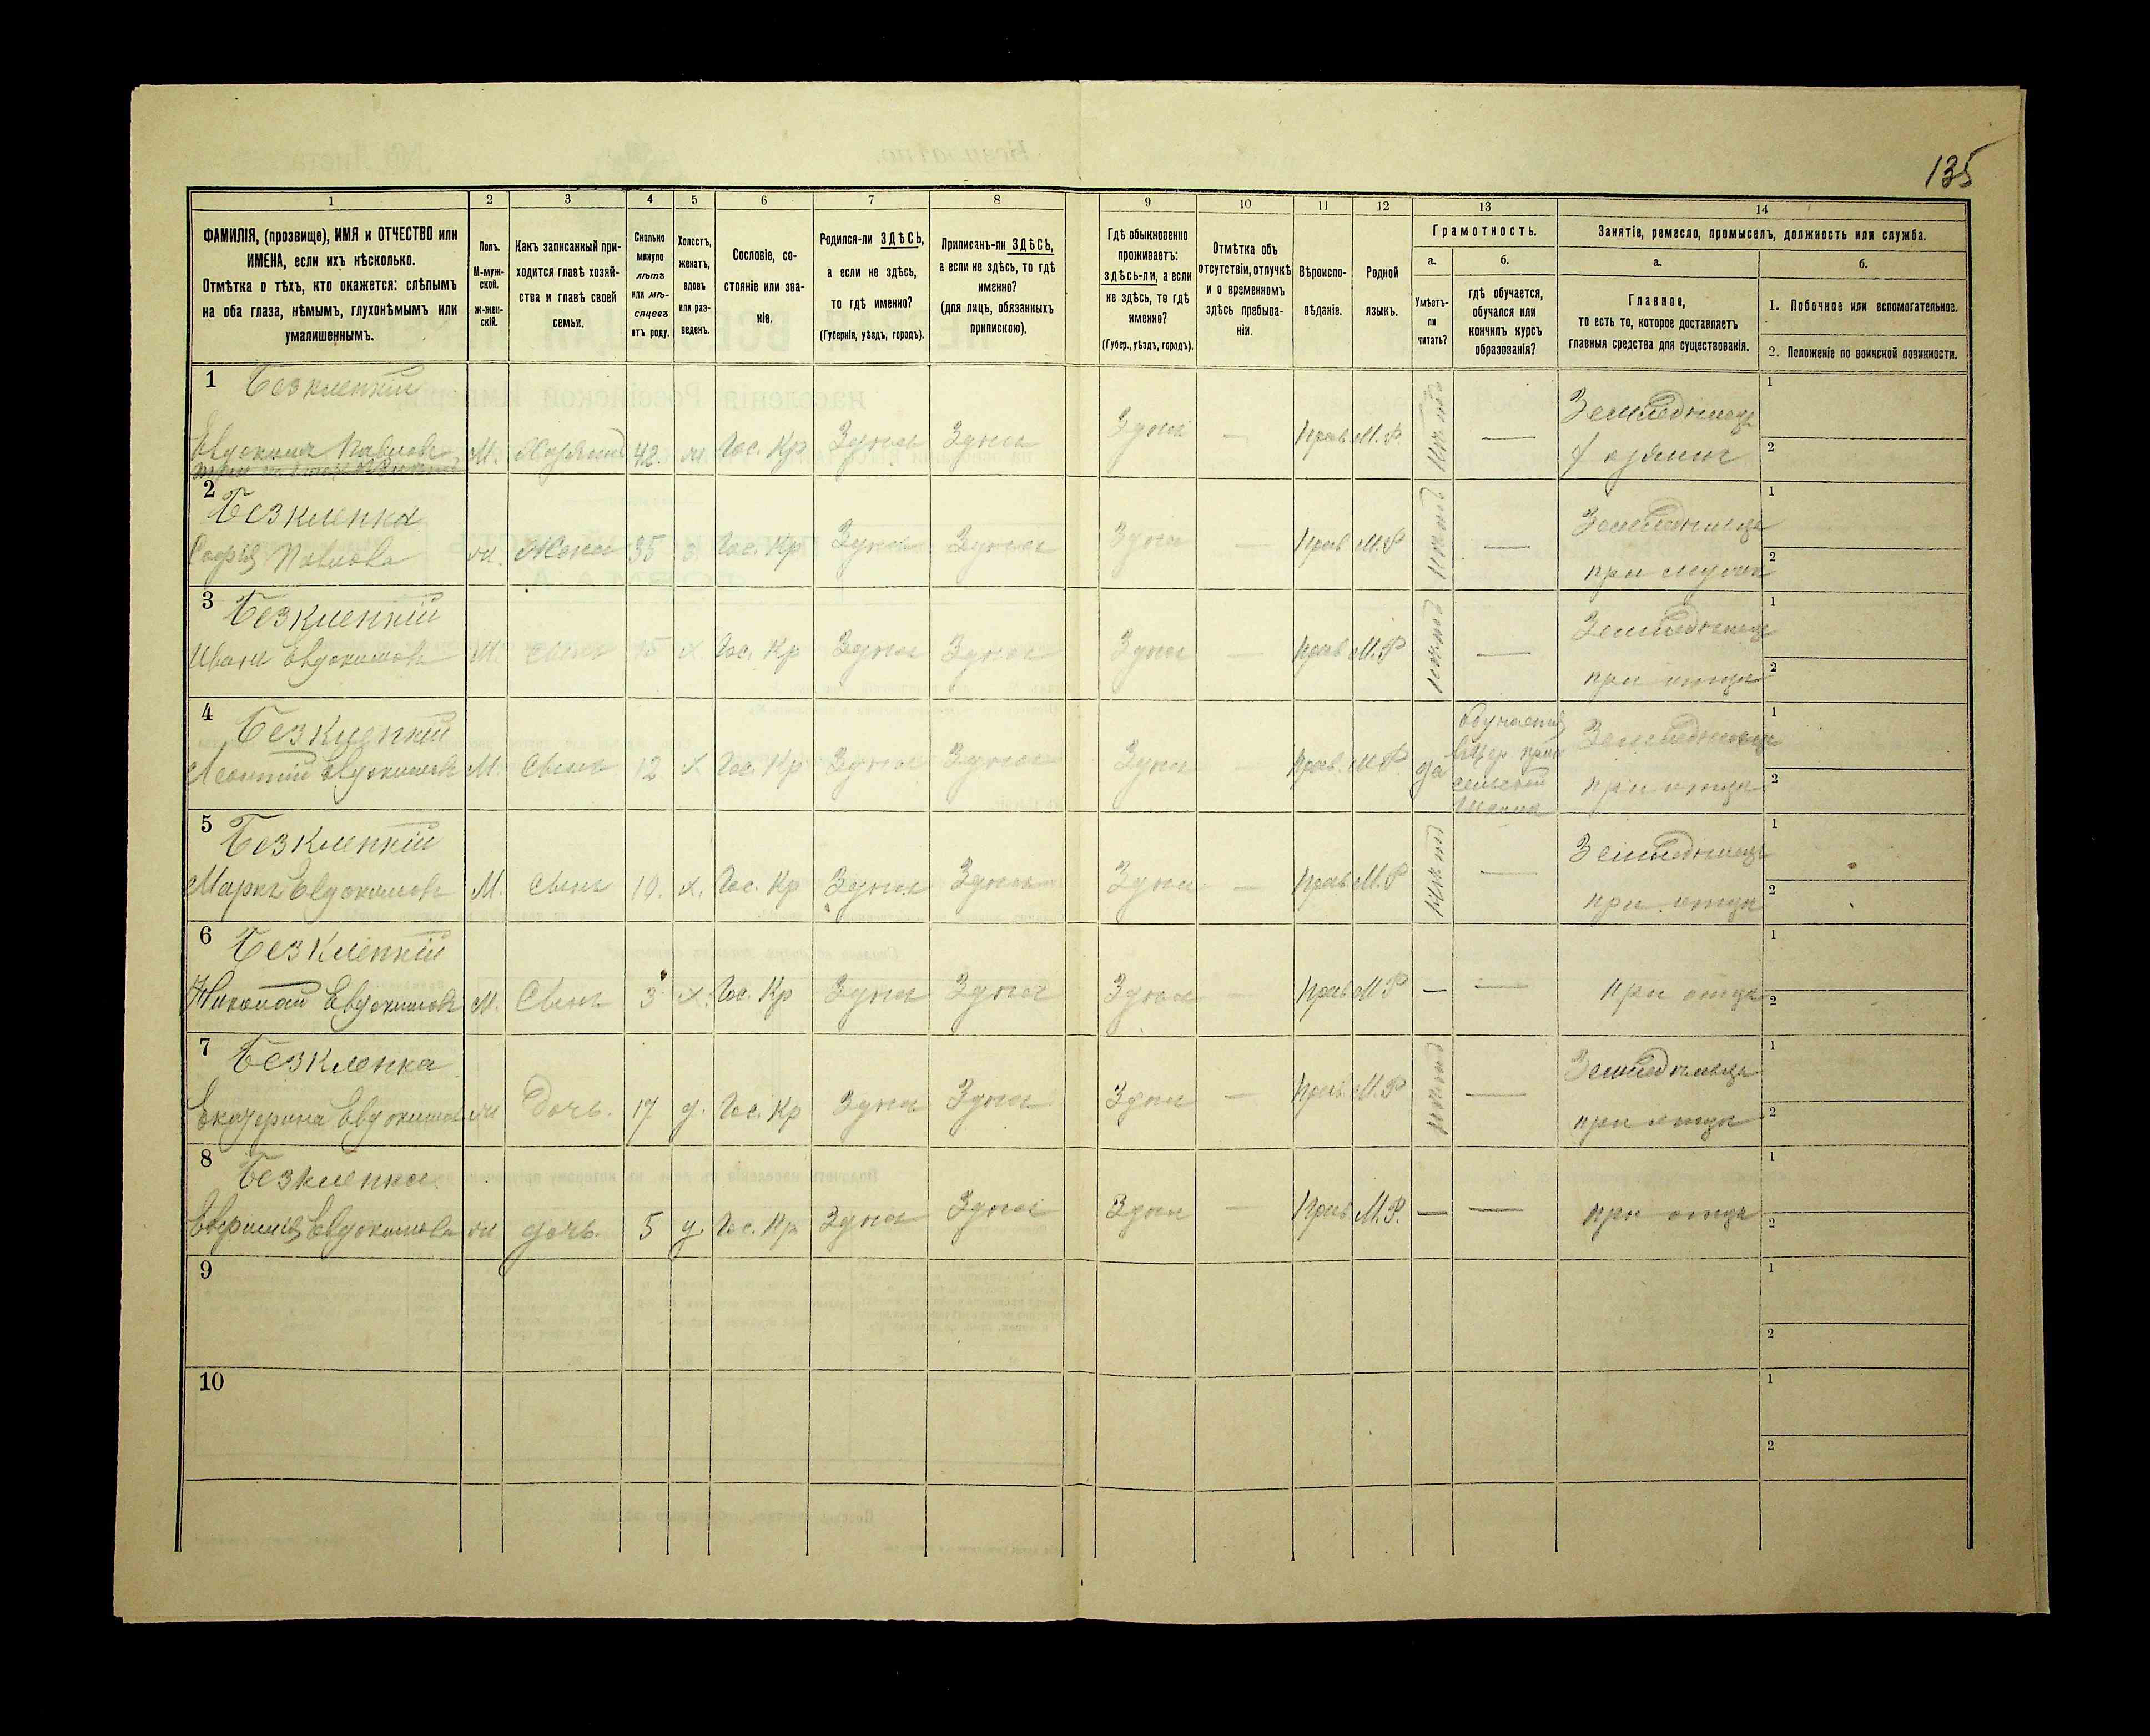 135
1 2 3 4 5 6 7 8 9 10 11 12 13 14
ФАМИЛІЯ, (прозвище), ИМЯ и ОТЧЕСТВО или
ИМЕНА, если ихъ нѣсколько.
Отмѣтка о тѣхъ, кто окажется: слѣпымъ
на оба глаза, нѣмымъ, глухонѣмымъ или
умалишеннымъ.
Полъ.
М-муж-
ской.
ж-жен-
скій.
Какъ записанный при-
ходится главѣ хозяй-
ства и главѣ своей
семьи.
Сколько
минуло
лѣтъ
или мѣ-
сяцевъ
отъ роду.
Холостъ,
женатъ,
вдовъ
или раз-
веденъ.
Сословіе, со-
стояніе или зва-
ніе.
Родился-ли ЗДѢСЬ,
а если не здѣсь,
то гдѣ именно?
(Губернія, уѣздъ, городъ).
Приписанъ-ли ЗДѢСЬ,
а если не здѣсь, то гдѣ
именно?
(для лицъ, обязанныхъ
припискою).
Гдѣ обыкновенно
проживаетъ:
здѣсь-ли, а если
не здѣсь, то гдѣ
именно?
(Губер., уѣздъ, городъ).
Отмѣтка объ
отсутствіи, отлучкѣ
и о временномъ
здѣсь пребыва-
ніи.
Вѣроиспо-
вѣданіе.
Родной
языкъ.
Грамотность.
а.
Умѣетъ-
ли
читать?
б.
гдѣ обучается,
обучался или
кончилъ курсъ
образованія?
Занятіе, ремесло, промыселъ, должность или служба.
а.
Главное,
то есть то, которое доставляетъ
главныя средства для существованія.
б.
1. Побочное или вспомогательное.
2. Положеніе по воинской повинности.
1 Безклепкій
Евдокимъ Павловъ М. Хозяинъ 42. Гос. Кр Здѣсь Здѣсь Здѣсь — Прав М.Р. нѣтъ — Земледѣлецъ
хозяинъ
1
2
2 Безклепка
Софія Павлова Жена 35 Гос. Кр Здѣсь Здѣсь Здѣсь — Прав М.Р нѣтъ — Земледѣлецъ
при мужѣ
1
2
3 Безклепкій
Иванъ Евдокимовъ М. сынъ 15 х. Гос. Кр Здѣсь Здѣсь Здѣсь — Прав М.Р нѣтъ — Земледѣлецъ
при отцѣ
1
2
4 Безклепкій
Леонтій Евдокимовъ М. Сынъ 12 х Гос. Кр Здѣсь Здѣсь Здѣсь Прав. М.Р да обучается
сельской
Земледѣлецъ
при отцѣ
1
2
5 Безклепкій
Маркъ Евдокимовъ М. Сынъ 10. х. Гос. Кр Здѣсь Здѣсь Здѣсь — Прав М.Р нѣтъ — Земледѣлецъ
при отцѣ
1
2
6 Безклепкій
Николай Евдокимовъ М. Сынъ 3 х. Гос. Кр Здѣсь Здѣсь Здѣсь — Прав М.Р — — при отцѣ
1
2
7 Безклепка
Екатерина Евдокимова Дочь. 17 д. Гос. Кр Здѣсь Здѣсь Здѣсь — Прав. М.Р нѣтъ — Земледѣлецъ
при отцѣ
1
2
8 Безклепка
Евфимія Евдокимова дочь. 5 д. Гос. Кр Здѣсь Здѣсь Здѣсь — Прав М.Р. — — при отцѣ
1
2
9
1
2
10
1
2